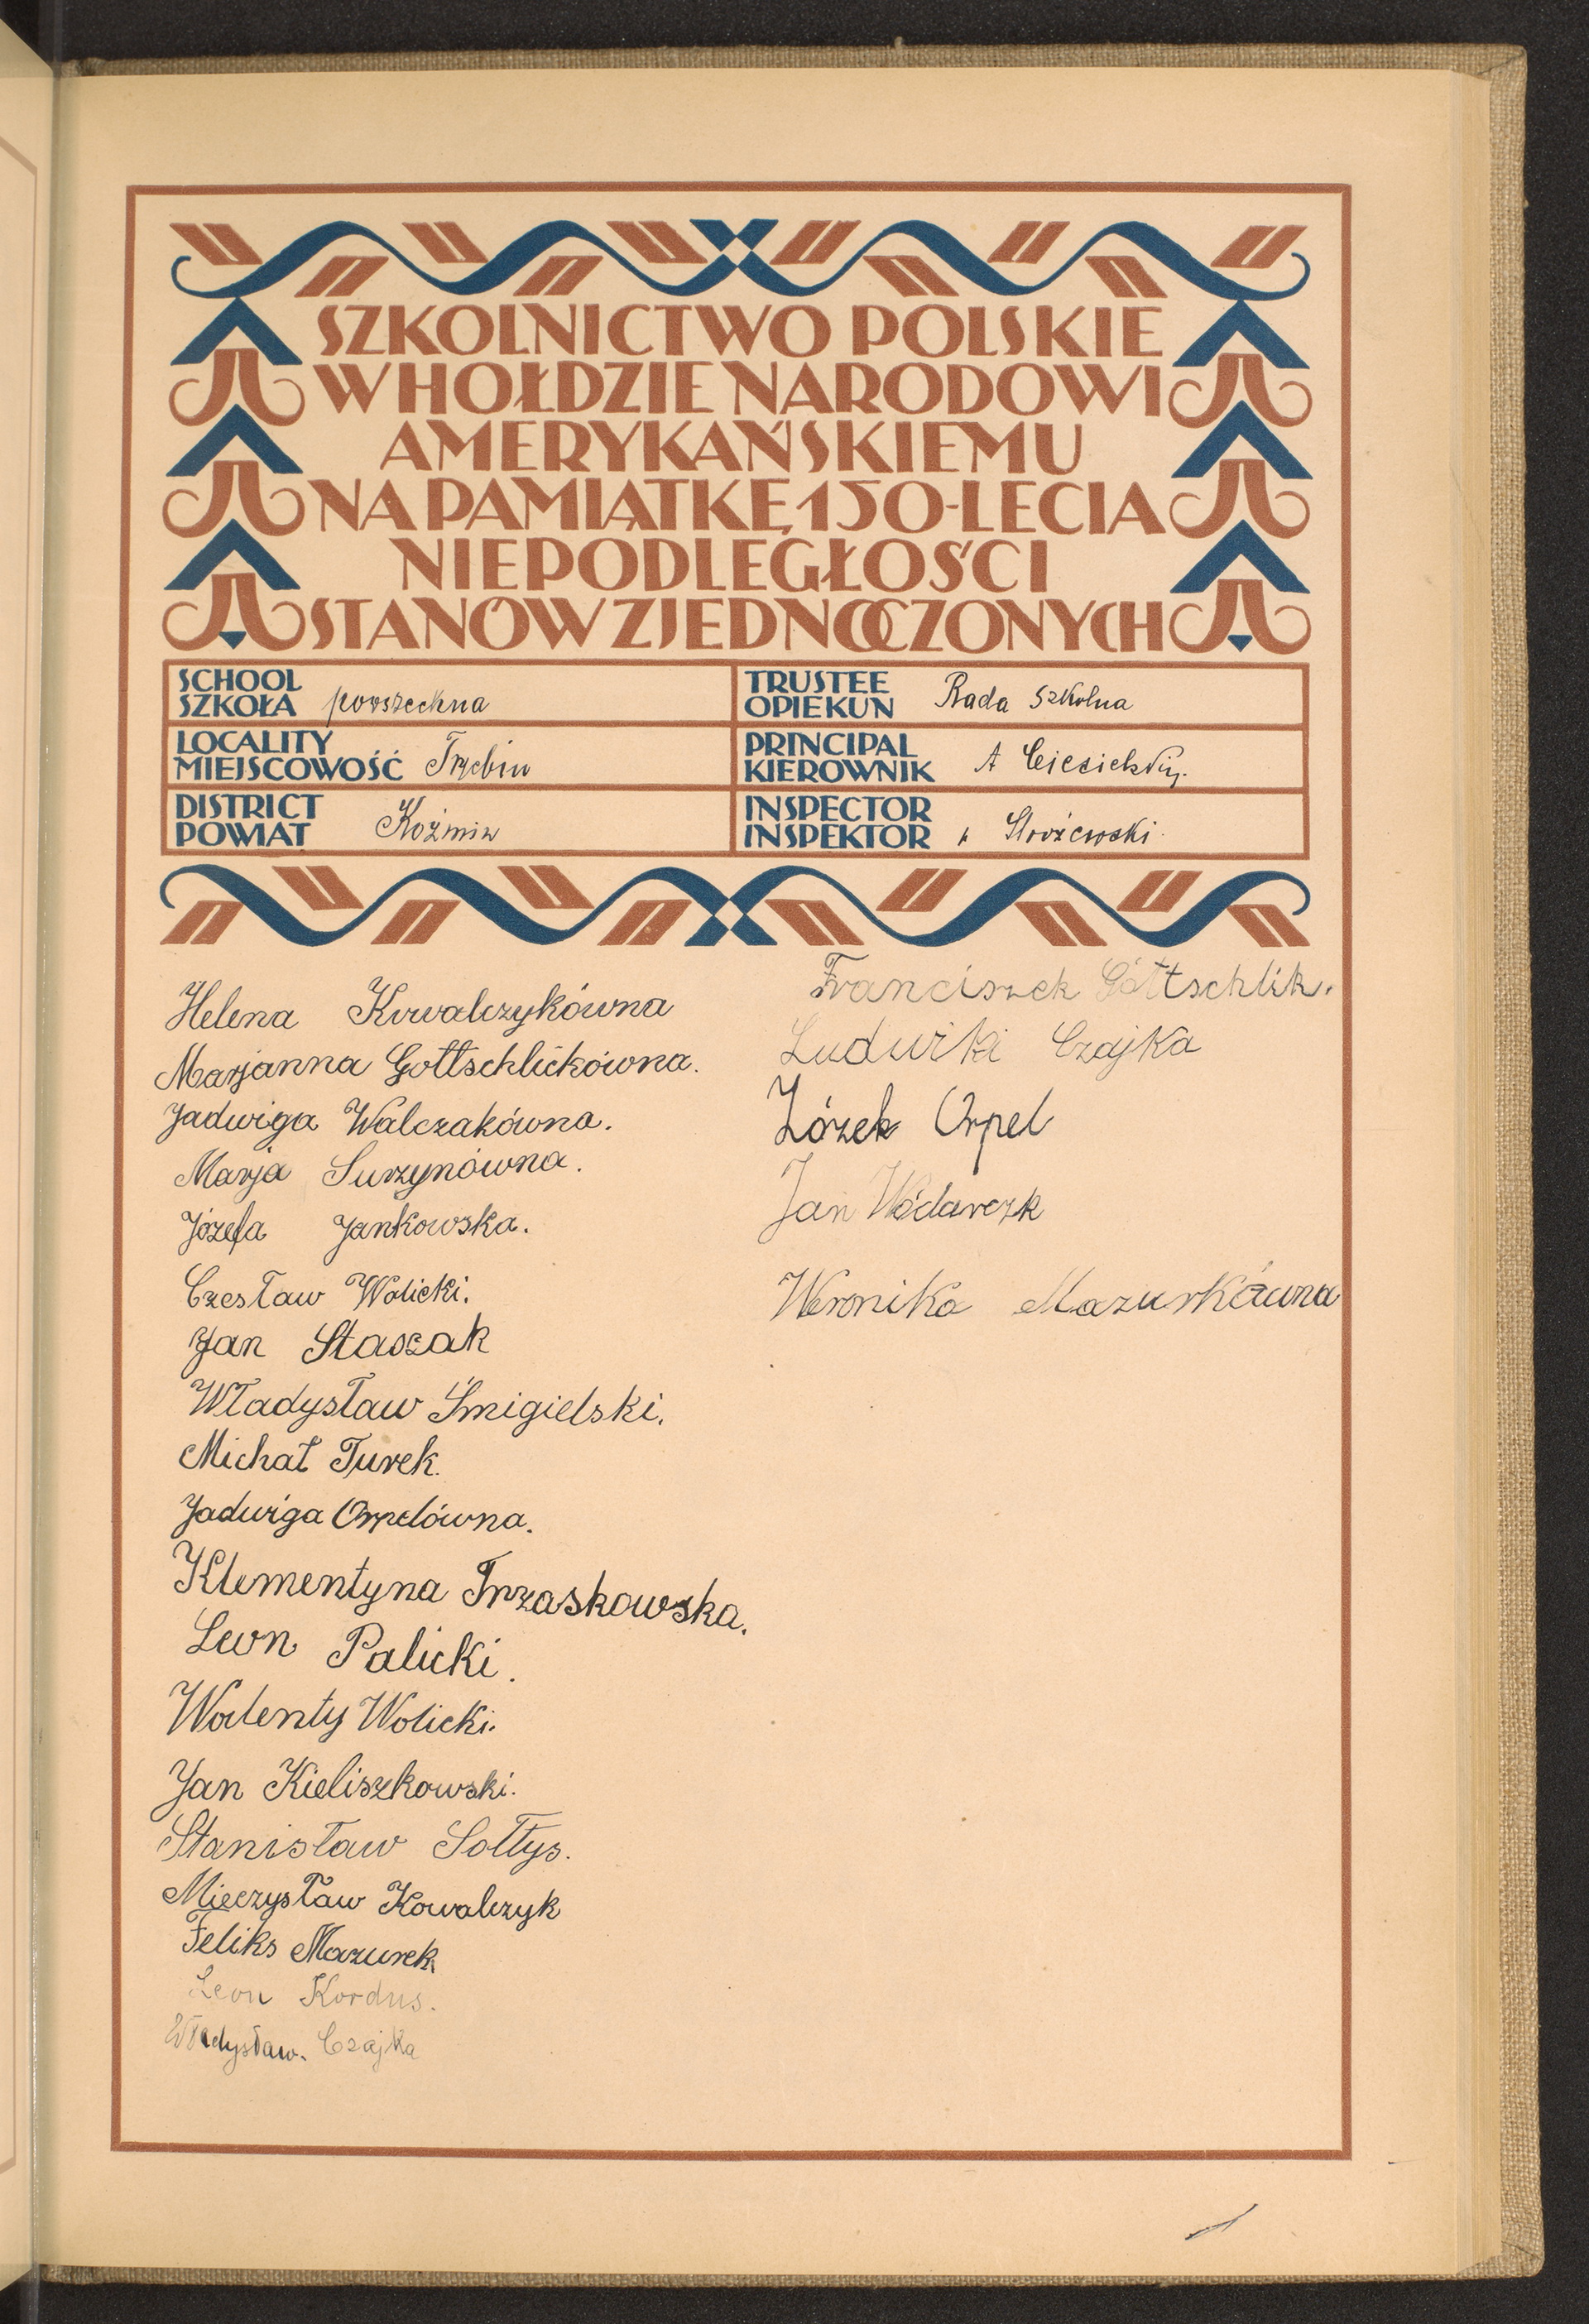 SZKOLNICTWO POLSKIE
W HOŁDZIE NARODOWI
AMERYKAŃSKIEMU
NA PAMIĄTKĘ 150-LECIA
NIEPODLEGŁOŚCI
STANÓW ZJEDNOCZONYCH
SCHOOL
SZKOŁA powszechna
TRUSTEE
OPIEKUN Rada Szkolna
LOCALITY
MIEJSCOWOŚĆ Trzebin
PRINCIPAL
KIEROWNIK A
DISTRICT
POWIAT Koźmin
INSPECTOR
INSPEKTOR Stróżewski
Helena Kowalczykówna
Marjanna Gottschlickówna.
Jadwiga Walczakówna.
Marja Surzynówna.
Józefa Jankowska.
Czesław Wolicki.
Jan Staszak
Władysław Śmigielski.
Michał Turek.
Jadwiga Orpelówna.
Klementyna Trzaskowska.
Leon Palicki.
Walenty Wolicki.
Jan Kieliszkowski.
Stanisław Sołtys.
Mieczysław Kowalczyk
Feliks Mazurek
Leon Kordus.
Władysław. Czajka
Franciszek Gottschlik.
Ludwiki Czajka
Józek Orpel
Jan Wódarczk
Weronika Mazurkówna